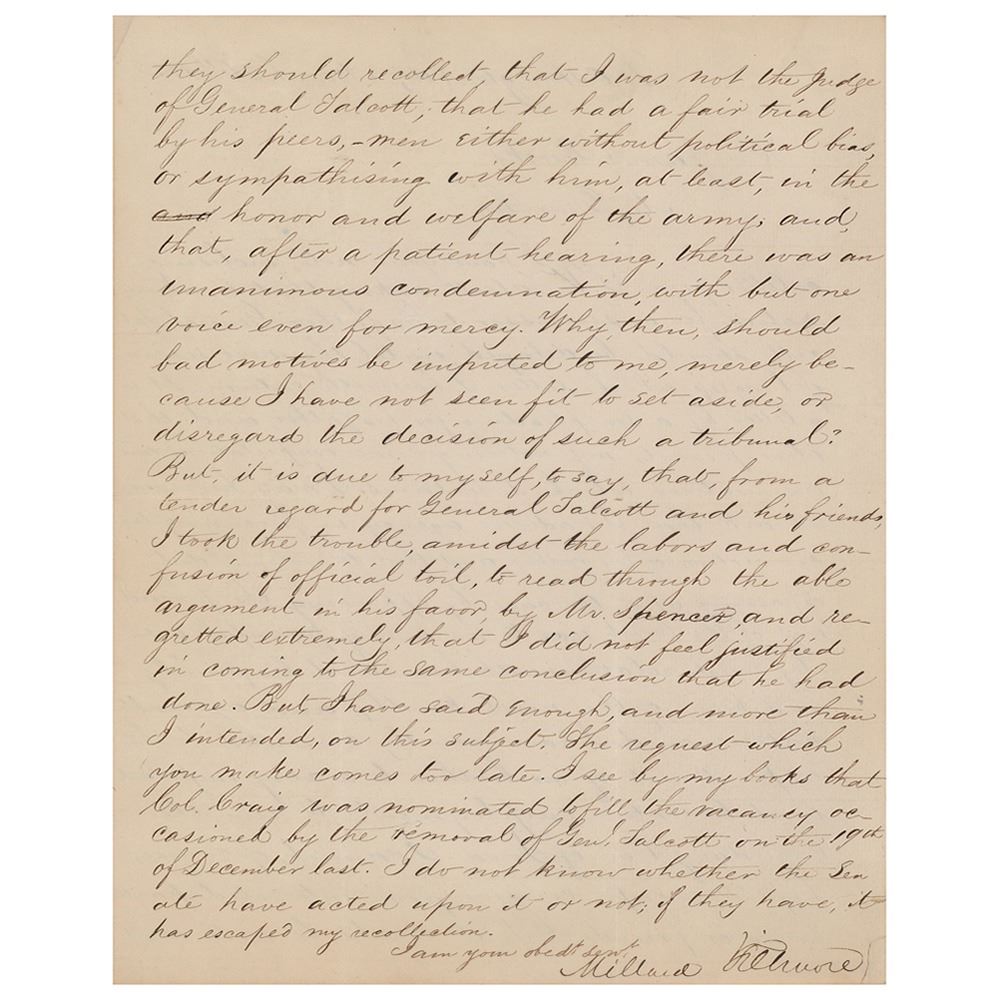 they should recollect, that I was not the Judge
of General Talcott; that he had a fair trial
by his peers, - men either without political bias,
or sympathising with him, at least, in the
and honor and welfare of the army; and,
that, after a patient hearing, there was an
unanimous condemnation, with but one
voice even for mercy. Why, then, should
bad motives be imputed to me, merely be-
cause I have not seen fit to set aside, or
disregard the decision of such a tribunal?
But, it is due to myself, to say, that, from a
tender regard for General Talcott and his friends,
I took the trouble, amidst the labors and con-
fusion of official toil, to read through the able
argument in his favor, by Mr. Spencer, and re-
gretted extremely, that I did not feel justified
in coming to the same conclusion that he had
done. But, I have said enough, and more than
I intended, on this subject. The request which
you make comes too late. I see by my books that
Col. Craig was nominated to fill the vacancy oc-
casioned by the removal of Genl. Talcott on the 19th
of December last. I do not know whether the Sen
ate have acted upon it or not; if they have, it
has escaped my recollection.
I am your obedt servt
Millard Fillmore